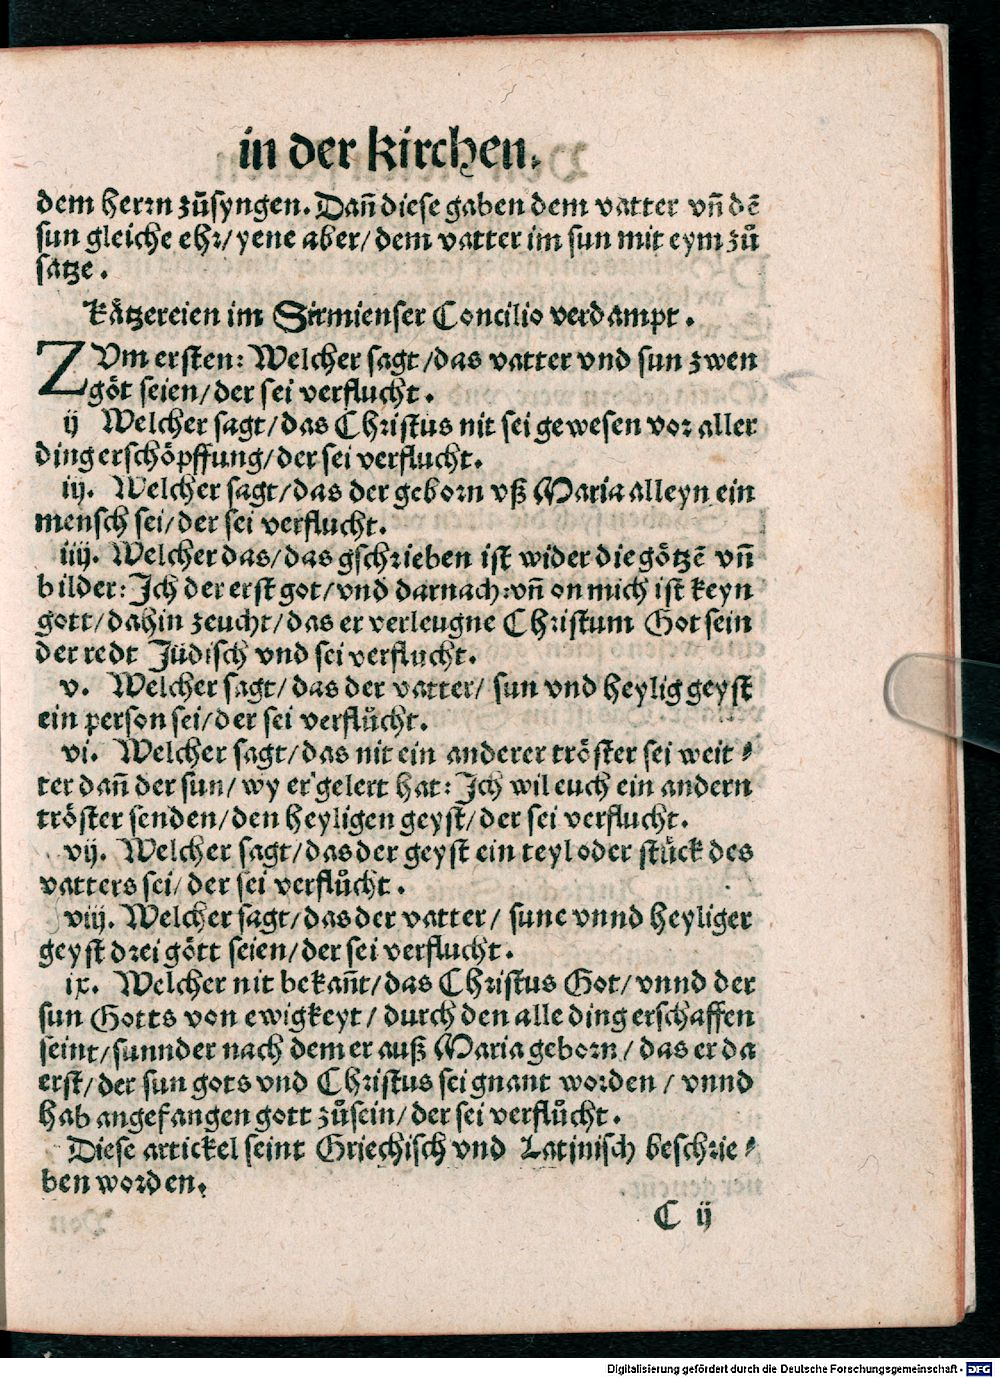 in der kirchen.
dem herrn zůsyngen. Dañ diese gaben dem vatter vñ dē
sun gleiche ehr/ yene aber/ dem vatter im sun mit eym zů
satze.
Kåtzereien im Sirmienser Concilio verdampt.
ZVm ersten: Welcher sagt/ das vatter vnd sun zwen
göt seien/ der sei verflucht.
ij Welcher sagt/ das Christus nit sei gewesen vor aller
ding erschöpffung/ der sei verflucht.
iij. Welcher sagt/ das der geborn vß Maria alleyn ein
mensch sei/ der sei verflucht.
iiij. Welcher das/ das gschrieben ist wider die götzē vñ
bilder: Ich der erst got/ vnd darnach: vñ on mich ist keyn
gott/ dahin zeucht/ das er verleugne Christum Got sein
der redt Jüdisch vnd sei verflucht.
v. Welcher sagt/ das der vatter/ sun vnd heylig geyst
ein person sei/ der sei verflůcht.
vi. Welcher sagt/ das nit ein anderer tröster sei weit⸗
ter dañ der sun/ wy er gelert hat: Ich wil euch ein andern
tröster senden/ den heyligen geyst/ der sei verflucht.
vij. Welcher sagt/ das der geyst ein teyl oder stück des
vatters sei/ der sei verflůcht.
viij. Welcher sagt/ das der vatter/ sune vnnd heyliger
geyst drei gött seien/ der sei verflucht.
ix. Welcher nit bekañt/ das Christus Got/ vnnd der
sun Gotts von ewigkeyt/ durch den alle ding erschaffen
seint/ sunnder nach dem er auß Maria geborn/ das er da
erst/ der sun gots vnd Christus sei gnant worden/ vnnd
hab angefangen gott zůsein/ der sei verflůcht.
Diese artickel seint Griechisch vnd Latinisch beschrie⸗
ben worden.
C ij
Digitalisierung gefördert durch die Deutsche Forschungsgemeinschaft - DFG